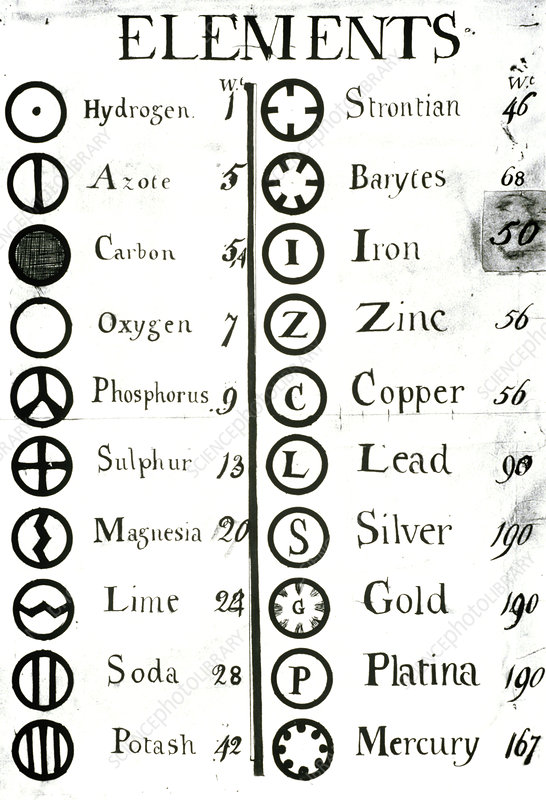 ELEMENTS
Wt
Hydrogen. 1
Azote 5
Carbon 5,4
Oxygen 7
Phosphorus. 9
Sulphur 13
Magnesia 20
Lime 24
Soda 28
Potash 42
Wt
Strontian 46
Barytes 68
I Iron 50
Z Zinc 56
C Copper 56
L Lead 90
S Silver 190
G Gold 190
P Platina 190
Mercury 167
SCIENCEPHOTOLIBRARY